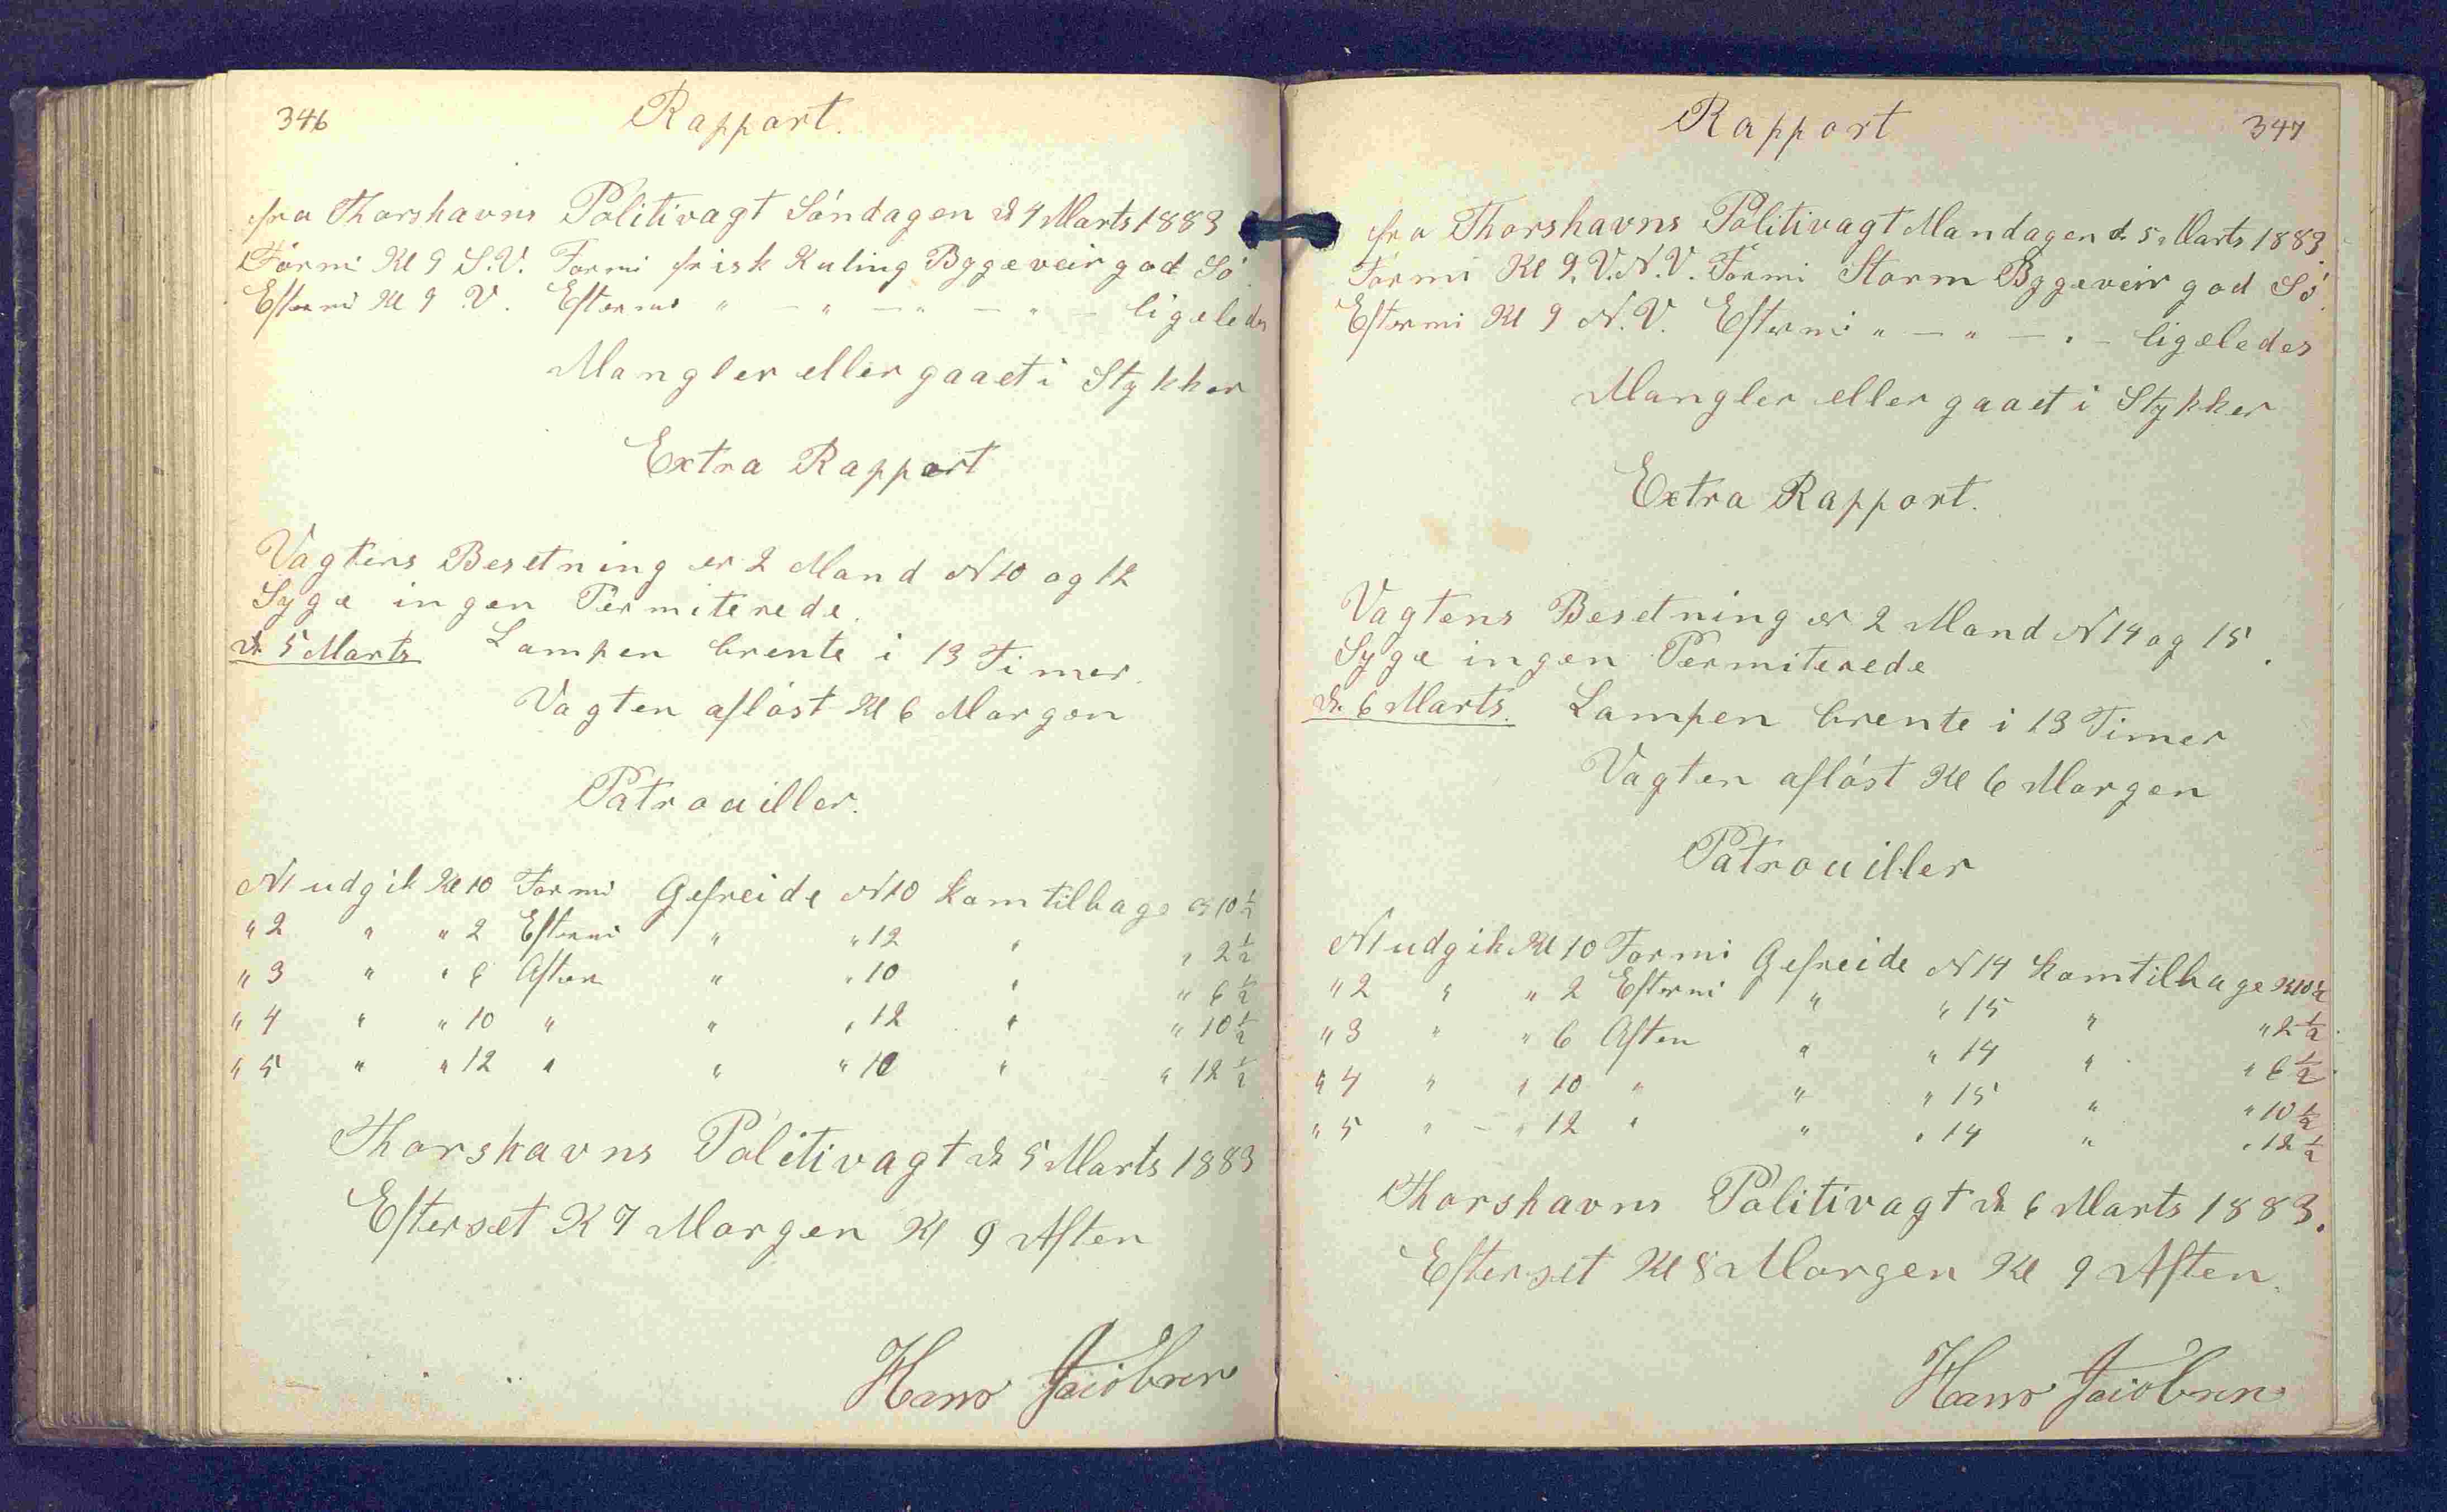 346
Rapport.
fra Thorshavns Politivagt Söndagen d 4 Marts 1883
Formi Kl 9 S.V. Formi frisk Kuling Byggeveir god Sö.
Eftermi Kl 9 V. Eftermi " — " — " — " — ligeledes
Mangler eller gaaet i Stykker
Extra Rapport
Vagtens Besetning er 2 Mand N 10 og 12
Syge ingen Permiterede.
d. 5 Marts Lampen brente i 13 Timer.
Vagten aflöst Kl 6 Morgen
Patrouiller.
N1 udgik Kl 10 Formi Gefreide N10 kom tilbage Kl 10 1/2
" 2 " " 2 Eftermi " " 12 " " 2 1/2
" 3 " " 6 Aften " " 10 " " 6 1/2
" 4 " " 10 " " " 12 " " 10 1/2
" 5 " " 12 " " " 10 " " 12 1/2
Thorshavns Politivagt d 5 Marts 1883
Efterset K 7 Morgen Kl 9 Aften
Hans Jacobsen
347
Rapport
fra Thorshavns Politivagt Mandagen d. 5 Marts 1883.
Formi Kl 9. V.N.V. Formi Storm Byggeveir god Sö.
Eftermi Kl 9 N.V. Eftermi " — " — " — ligeledes
Mangler eller gaaet i Stykker
Extra Rapport.
Vagtens Besetning er 2 Mand N 14 og 15.
Syge ingen Permiterede
d. 6 Marts. Lampen brente i 13 Timer
Vagten aflöst Kl 6 Morgen
Patrouiller
N1 udgik Kl 10 Formi Gefreide N 14 kom tilbage Kl 10 1/2
" 2 " " 2 Eftermi " " 15 " " 2 1/2
" 3 " " 6 Aften " " 14 " " 6 1/2
" 4 " " 10 " " " 15 " " 10 1/2
" 5 " - " 12 " " " 14 " " 12 1/2
Thorshavns Politivagt d 6 Marts 1883.
Efterset Kl 8 Morgen Kl 9 Aften.
Hans Jacobsen